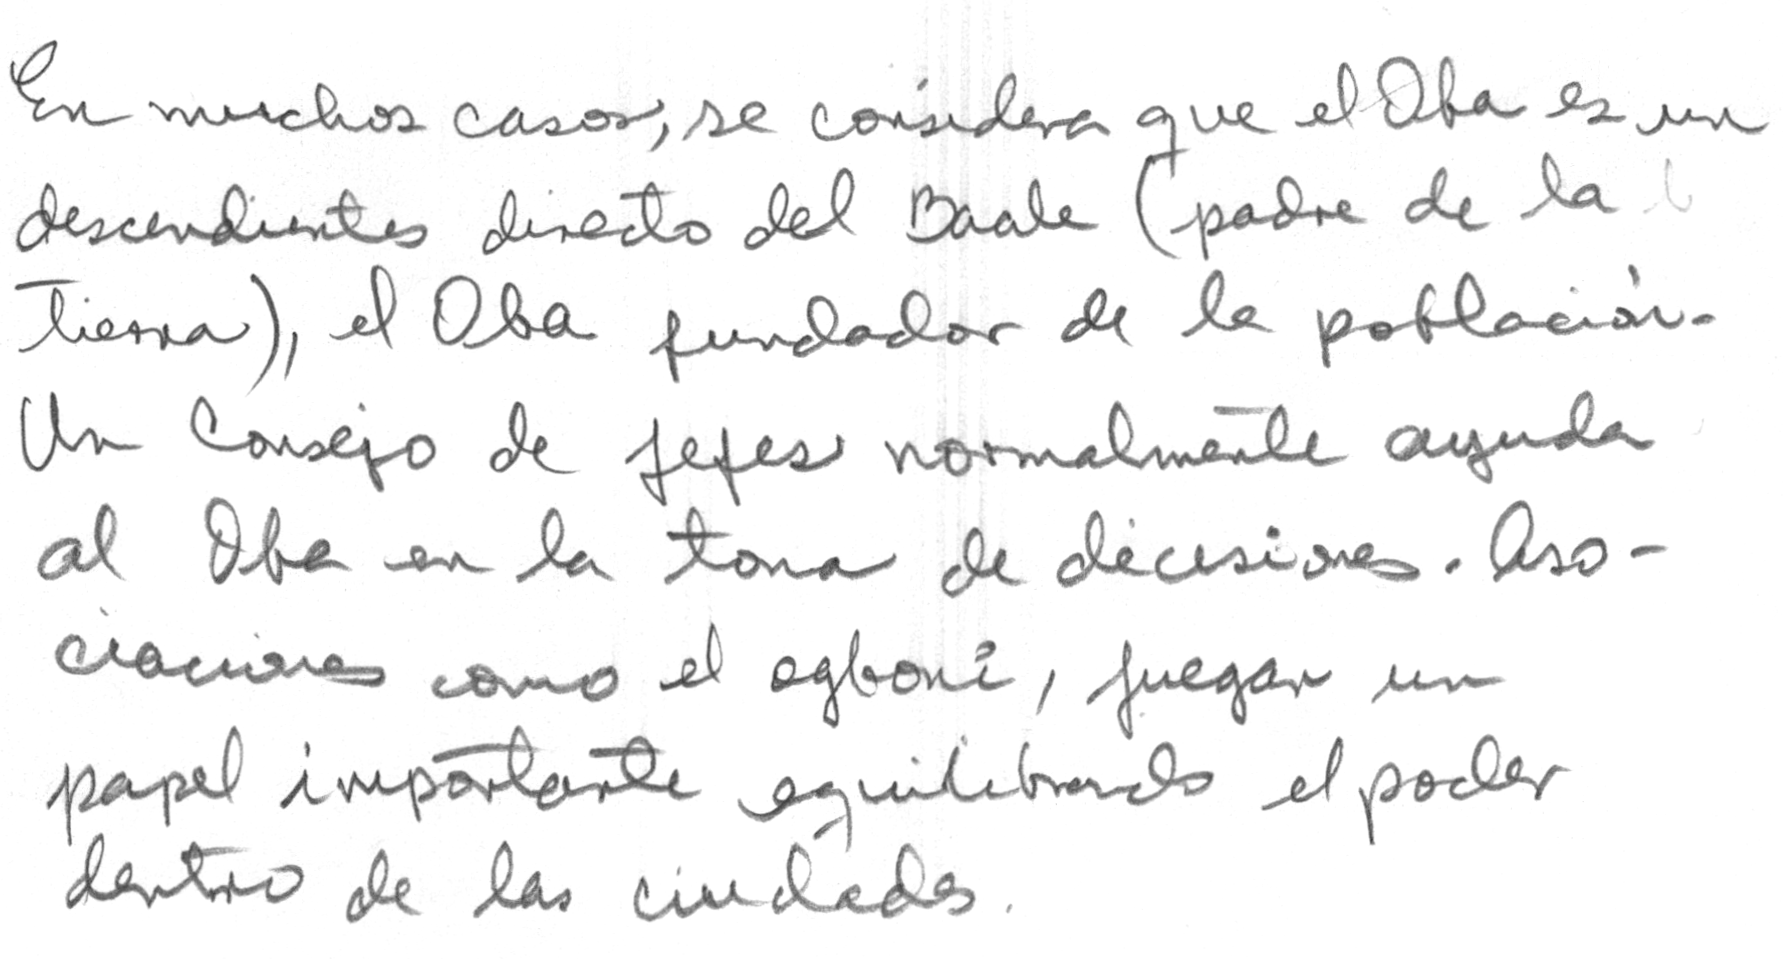 En muchos casos, se considera que el Oba es un
descendientes directo del Baale (padre de la
tierra), el Oba fundador de la población.
Un Consejo de jefes normalmente ayuda
al Oba en la toma de decesiones. Aso-
ciaciones como el ogboni, juegan un
papel importante equilibrando el poder
dentro de las ciudades.